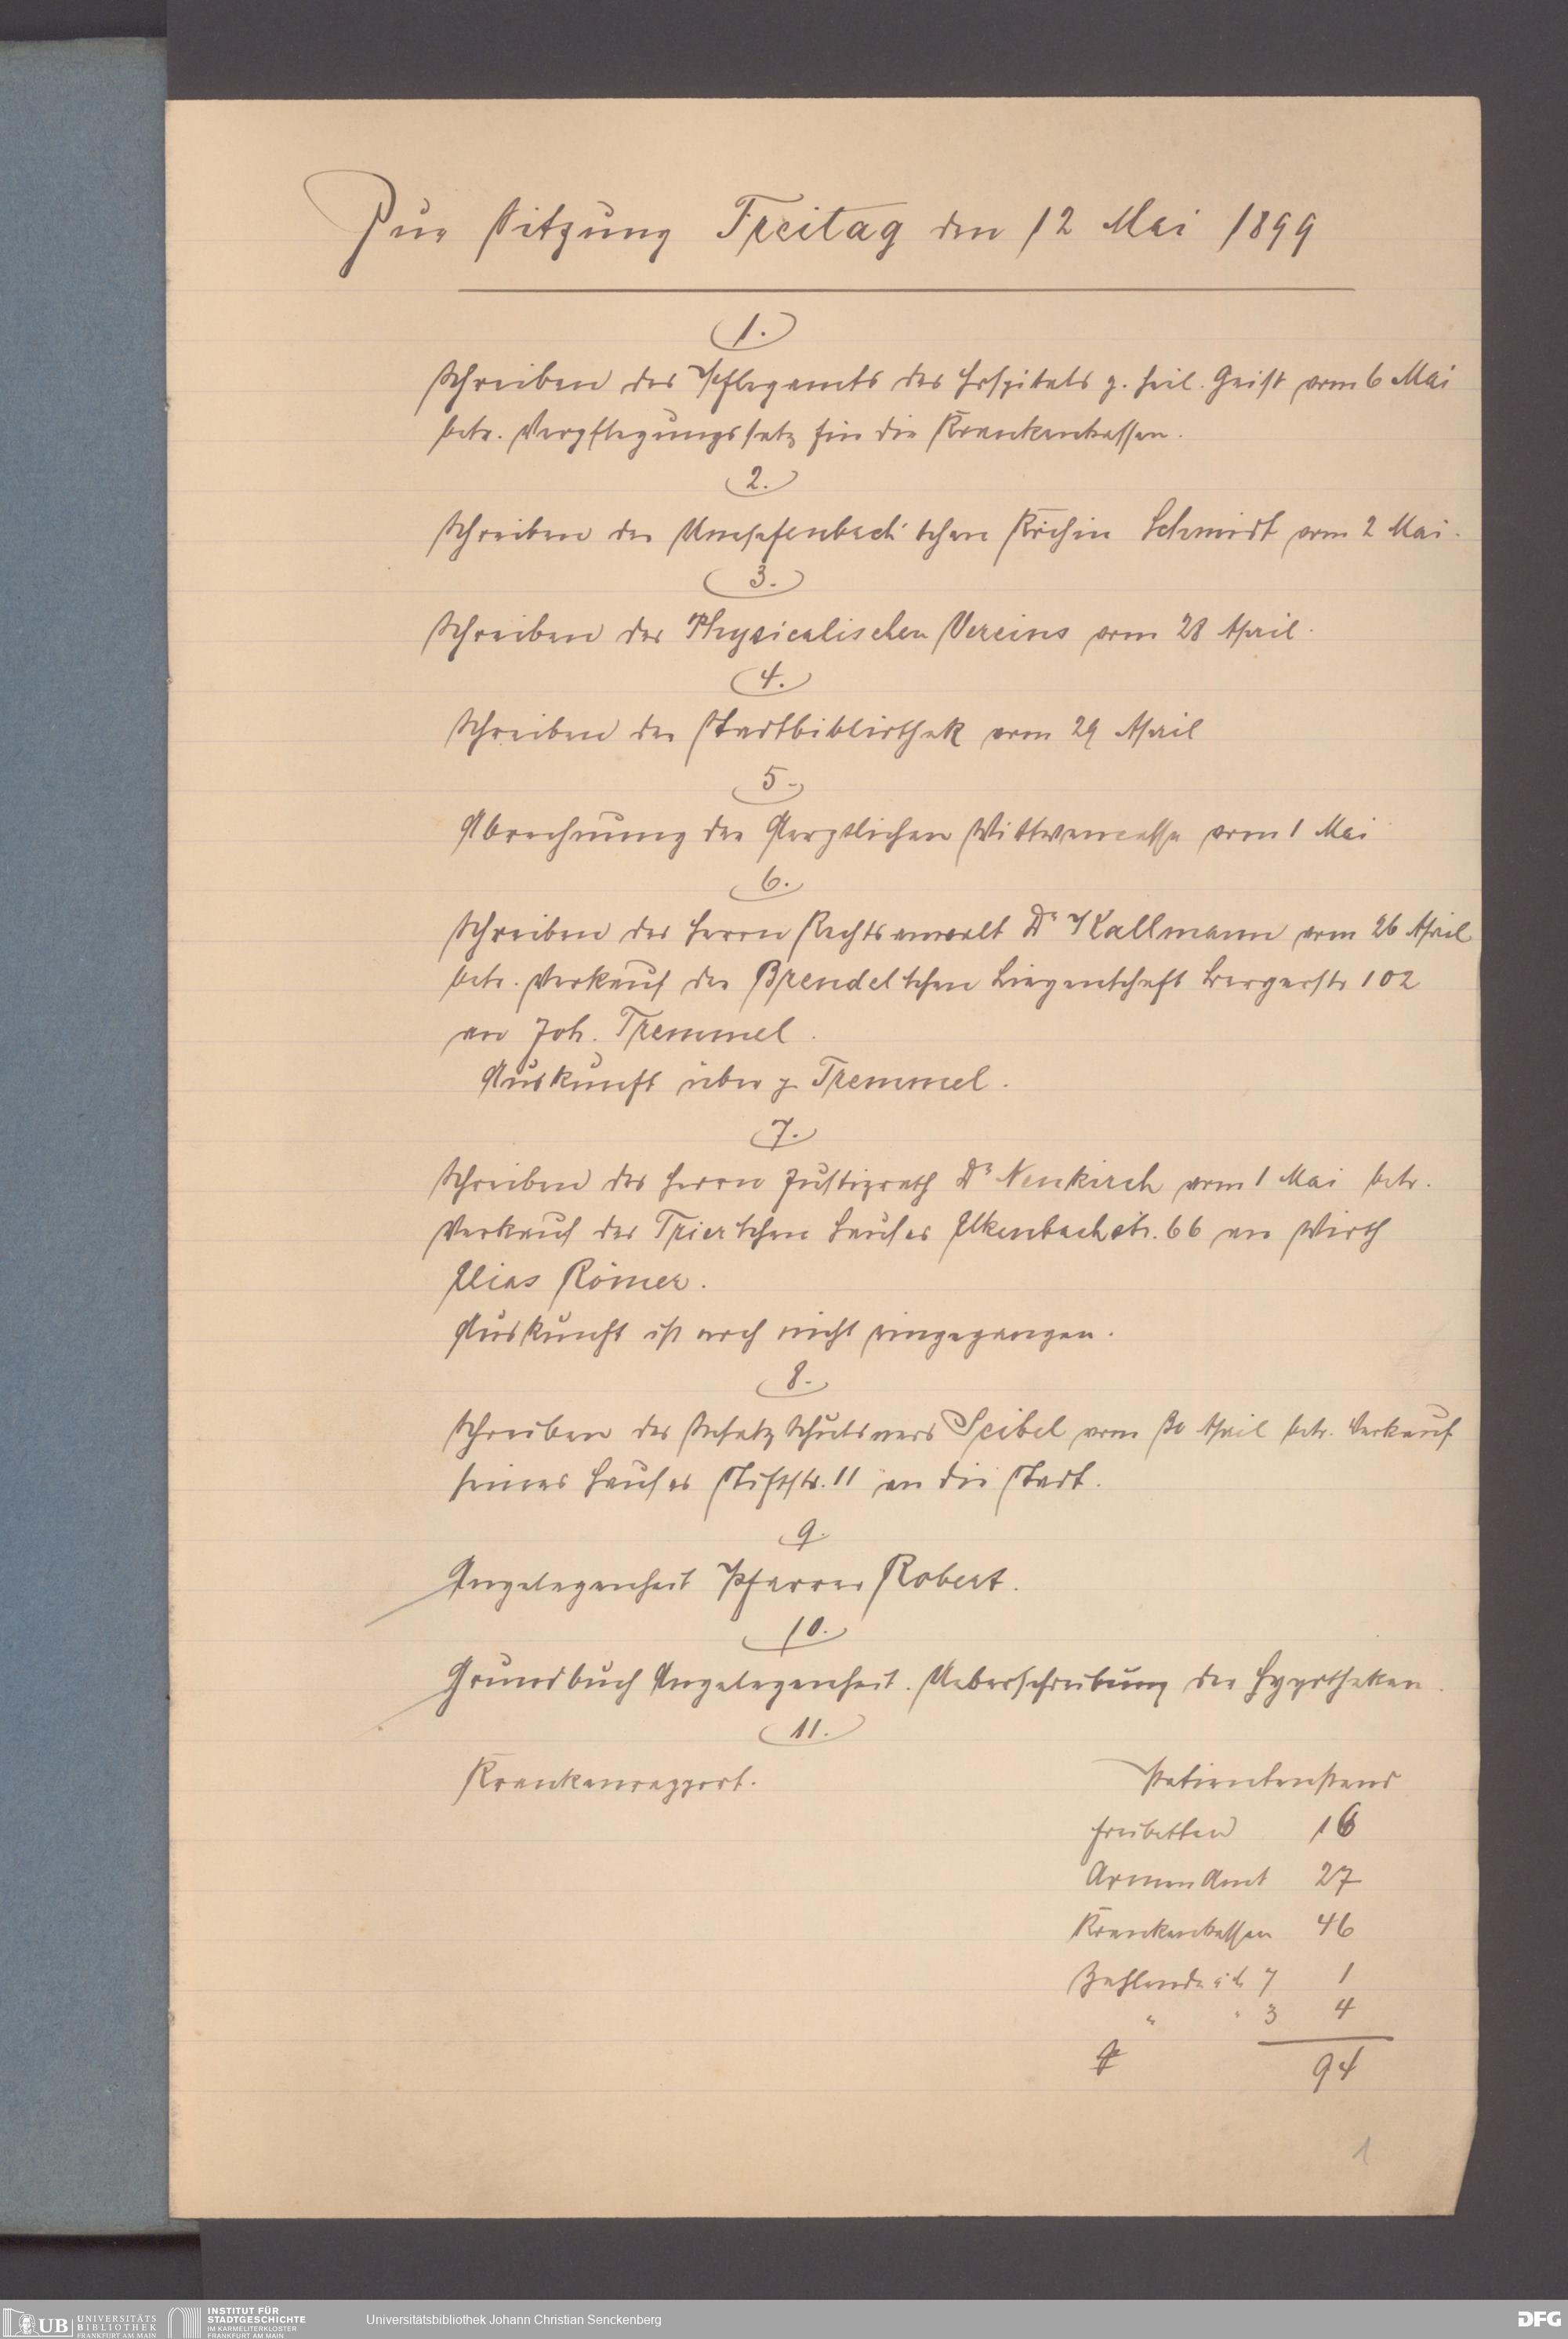 Zur Sitzung Freitag den 12 Mai 1899
1.
Schreiben des Pflegamts des Hospitals z. heil. Geist vom 6 Mai
betr. Verpflegungssatz für die Krankenkassen.
2.
Schreiben der Umpfenbach'schen Köchin Schmidt vom 2 Mai.
3.
Schreiben des Physicalischen Vereins vom 28 April.
4.
Schreiben der Stadtbibliothek vom 29 April
5.
Abrechnung der Aerztlichen Wittwencasse vom 1 Mai
6.
Schreiben des Herrn Rechtsanwalt Dr Kallmann vom 26 April
betr. Verkauf der Brendel'schen Liegenschaft Bergerstr 102
an Joh. Tremmel.
Auskunft über p Tremmel.
7.
Schreiben des Herrn Justizrath Dr Neukirch vom 1 Mai betr.
Verkauf des Trier'schen Hauses Elkenbachstr. 66 an Wirth
Elias Römer.
Auskunft ist noch nicht eingegangen.
8.
Schreiben des Schuldners Seibel vom 30 April betr. Verkauf
seines Hauses Stiftstr. 11 an die Stadt.
9.
Angelegenheit Pfarrer Robert.
10.
Grundbuch Angelegenheit. Ueberschreibung der Hypotheken.
11.
Krankenrapport.
Patientenstand
Freibetten 16
Armen Amt 27
Krankenkassen 46
Zahlende à M 7 1
" " 3 4
94
1
UB UNIVERSITÄTS
BIBLIOTHEK
FRANKFURT AM MAIN
INSTITUT FÜR
STADTGESCHICHTE
IM KARMELITERKLOSTER
FRANKFURT AM MAIN
Universitätsbibliothek Johann Christian Senckenberg
DFG